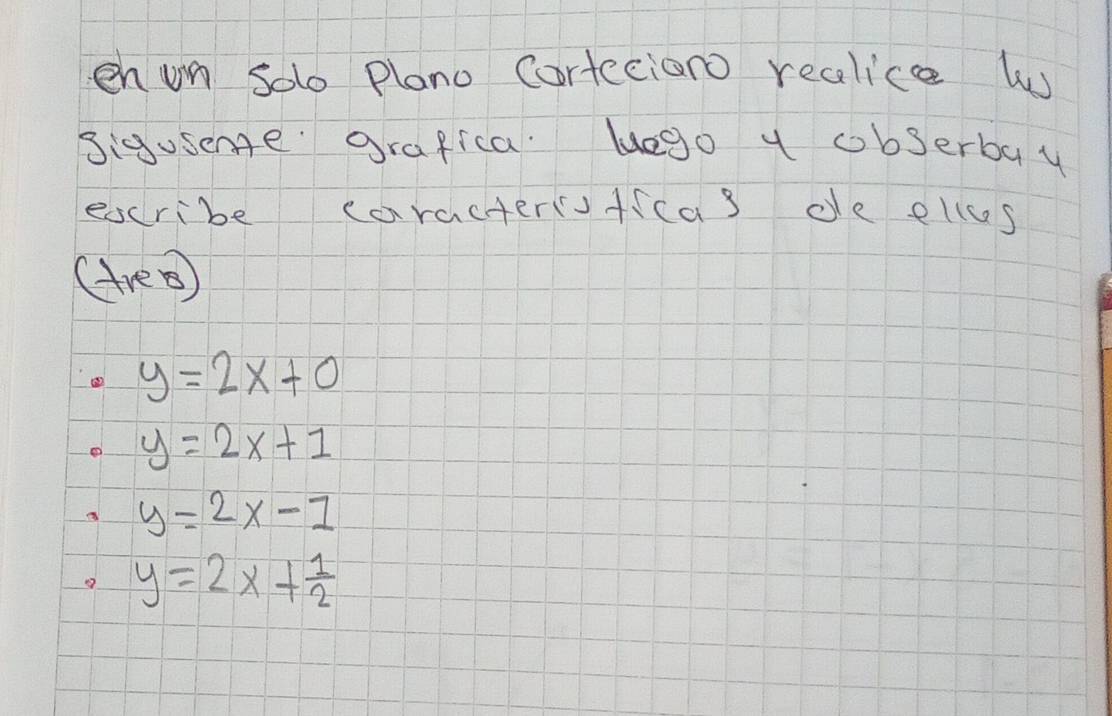 en un solo Plano Corteciano realice las
sigusente. grafica. luego y obserba y
escribe caracteristicas de ellas
(tres)
• y=2x+0
• y=2x+1
• y=2x-1
• y=2x+1/2